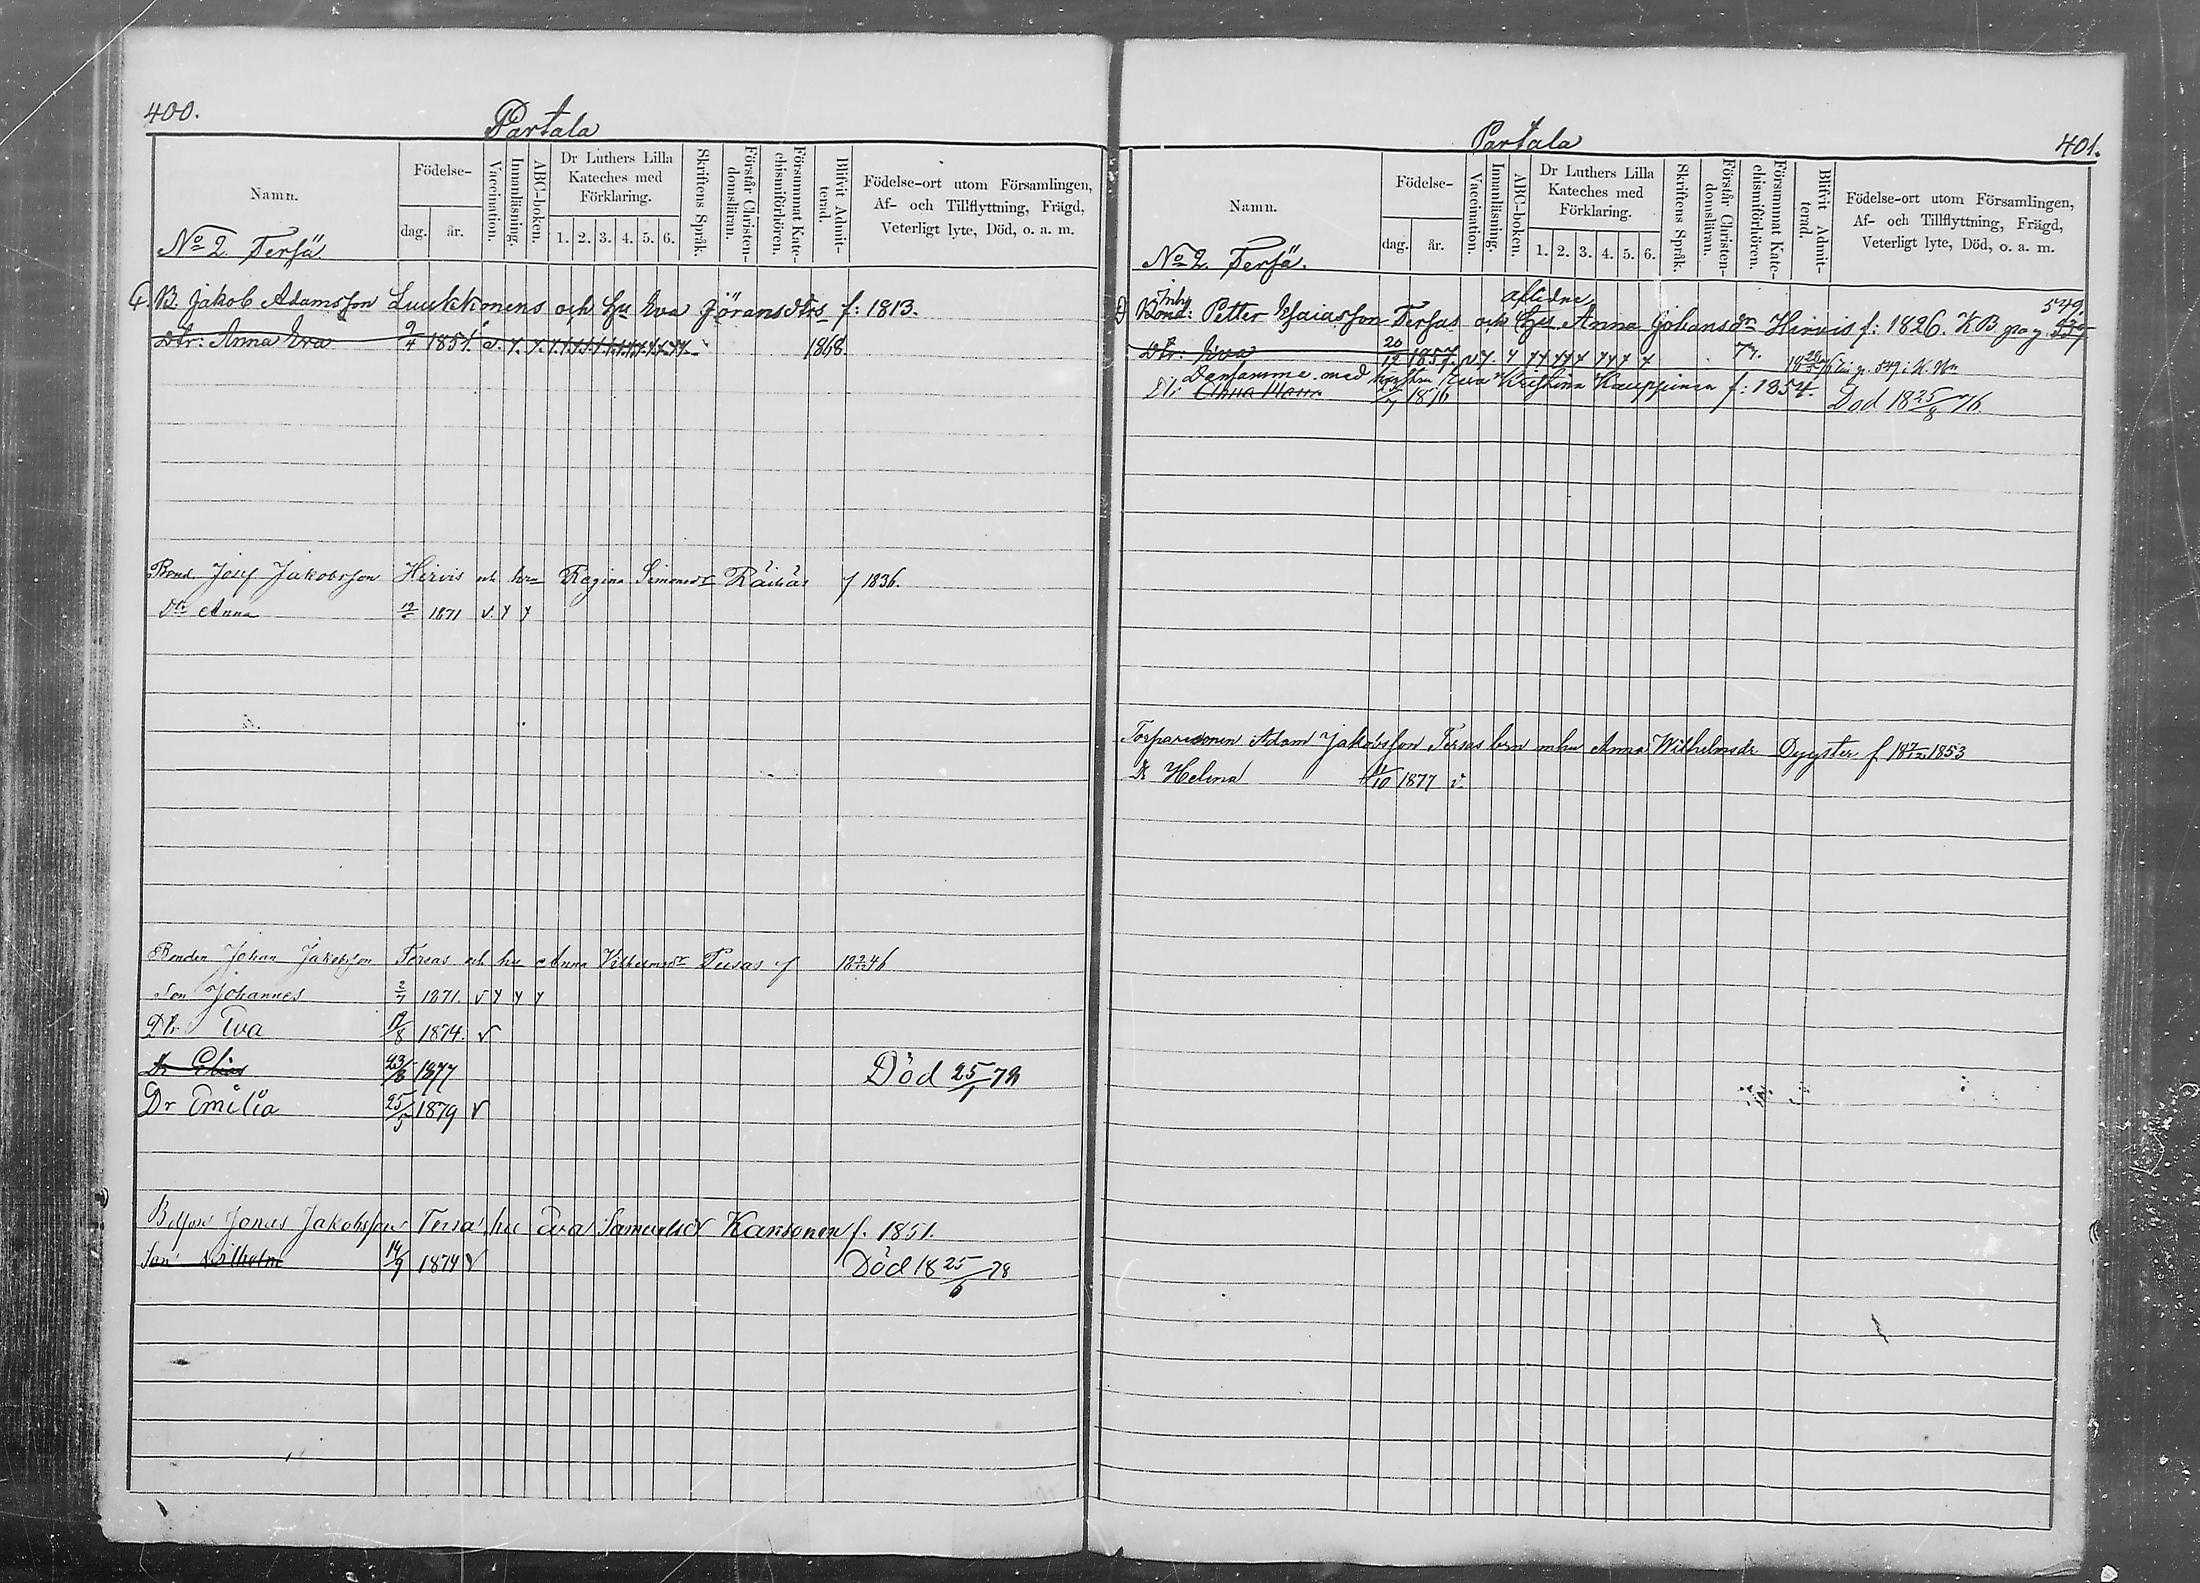 400.
Partala
Namn.
Födelse-
dag.
år.
Vaccination.
Innanläsning.
ABC-boken.
Dr Luthers Lilla
Kateches med
Förklaring.
1. 2. 3. 4. 5. 6.
Skriftens Språk.
Förstår Christen-
domsläran.
Försummat Kate-
chismiförhören.
Blifvit Admit-
terad.
Födelse-ort utom Församlingen,
Af- och Tillflyttning, Frägd,
Veterligt lyte, Död, o. a. m.
No 2 Tersä
B. Jakob Adamsson Luukkonens och hu Eva Jöransdtrs f: 1813.
Dtr: Anna Eva 9/4 1851. 1868.
Bond. Josef Jakobsson Hirvis och hu Regina Simonsdr Räihäs f 1836.
Dtr Anna 12/2 1871 v. y y
Bonden Johan Jakobsson Tersas och hu Anna Vilhelmsdr Pusas f 46
Son Johannes 2/7 1871. v y y y
Dtr Eva 17/8 1874. v
Dr Elias 23/8 1877 Död 25/1 78
Dr Emilia 25/5 1879 v
Jonas Jakobsson Tersas hu Eva Samuelsdr Kansonen f. 1851.
Son Wilhelm 14/7 1874 v Död 18 25/6 78
Partala
401.
Namn.
Födelse-
dag.
år.
Vaccination.
Innanläsning.
ABC-boken.
Dr Luthers Lilla
Kateches med
Förklaring.
1. 2. 3. 4. 5. 6.
Skriftens Språk.
Förstår Christen-
domsläran.
Försummat Kate-
chismiförhören.
Blifvit Admit-
terad.
Födelse-ort utom Församlingen,
Af- och Tillflyttning, Frägd,
Veterligt lyte, Död, o. a. m.
No 2. Tersä.
Inh. aflidne 549.
Bond: Petter Esaiasson Tersas och Hu Anna Johansdr Hirvis f: 1826. KB pag
Dtr: Eva 20/12 1857. v y. y
Densamme med hustrun Eva Kristina Kauppinen f: 1854.
Dtr Anna Maria 1876 Död 18 25/8 76
Torparesonen Adam Jakobsson Tersas mhu Anna Wilhelmsdr Dyyster f 1853
Dr Helena 11/10 1877 v.